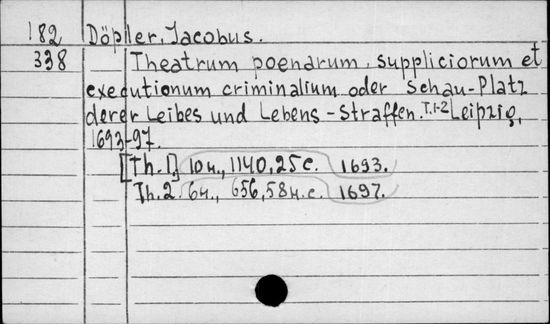 182 Döpler, Jacobus.
338 Theatrum poenarum, suppliciorum et
executionum criminalium oder Schau-Platz
derer Leibes und Lebens-Straffen. T.1-2 Leipzig,
1693-97.
[Th.1], 10 н., 1140, 25 с. 1693.
Th.2. 6 н., 656, 58 н.с. 1697.